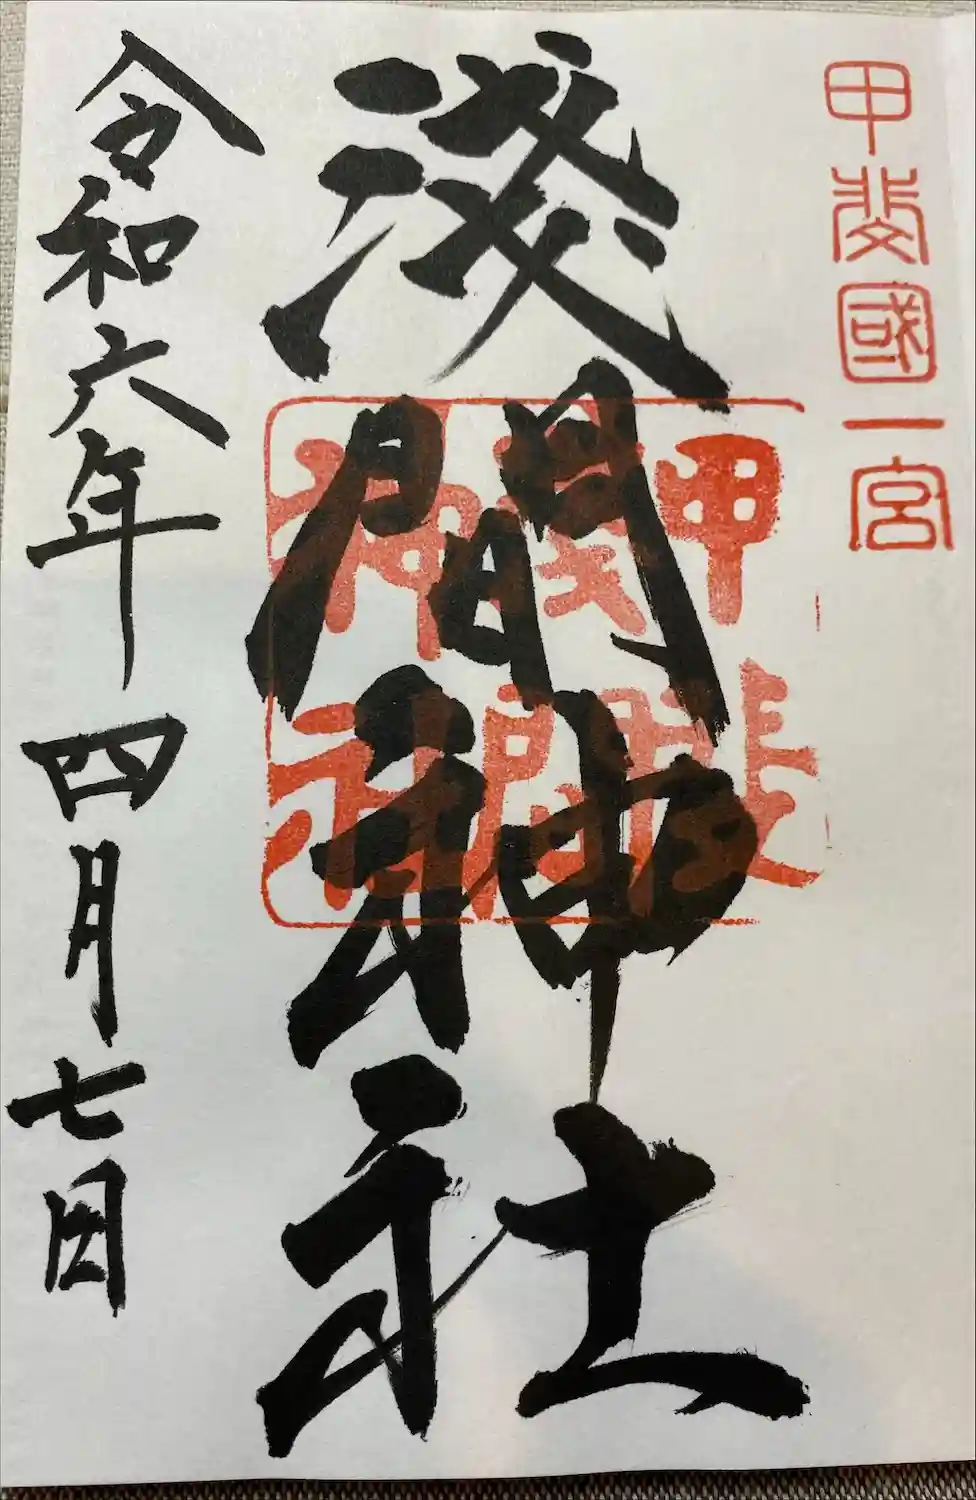 甲斐國一宮
淺間神社
甲斐
淺間
神社
令和六年四月七日